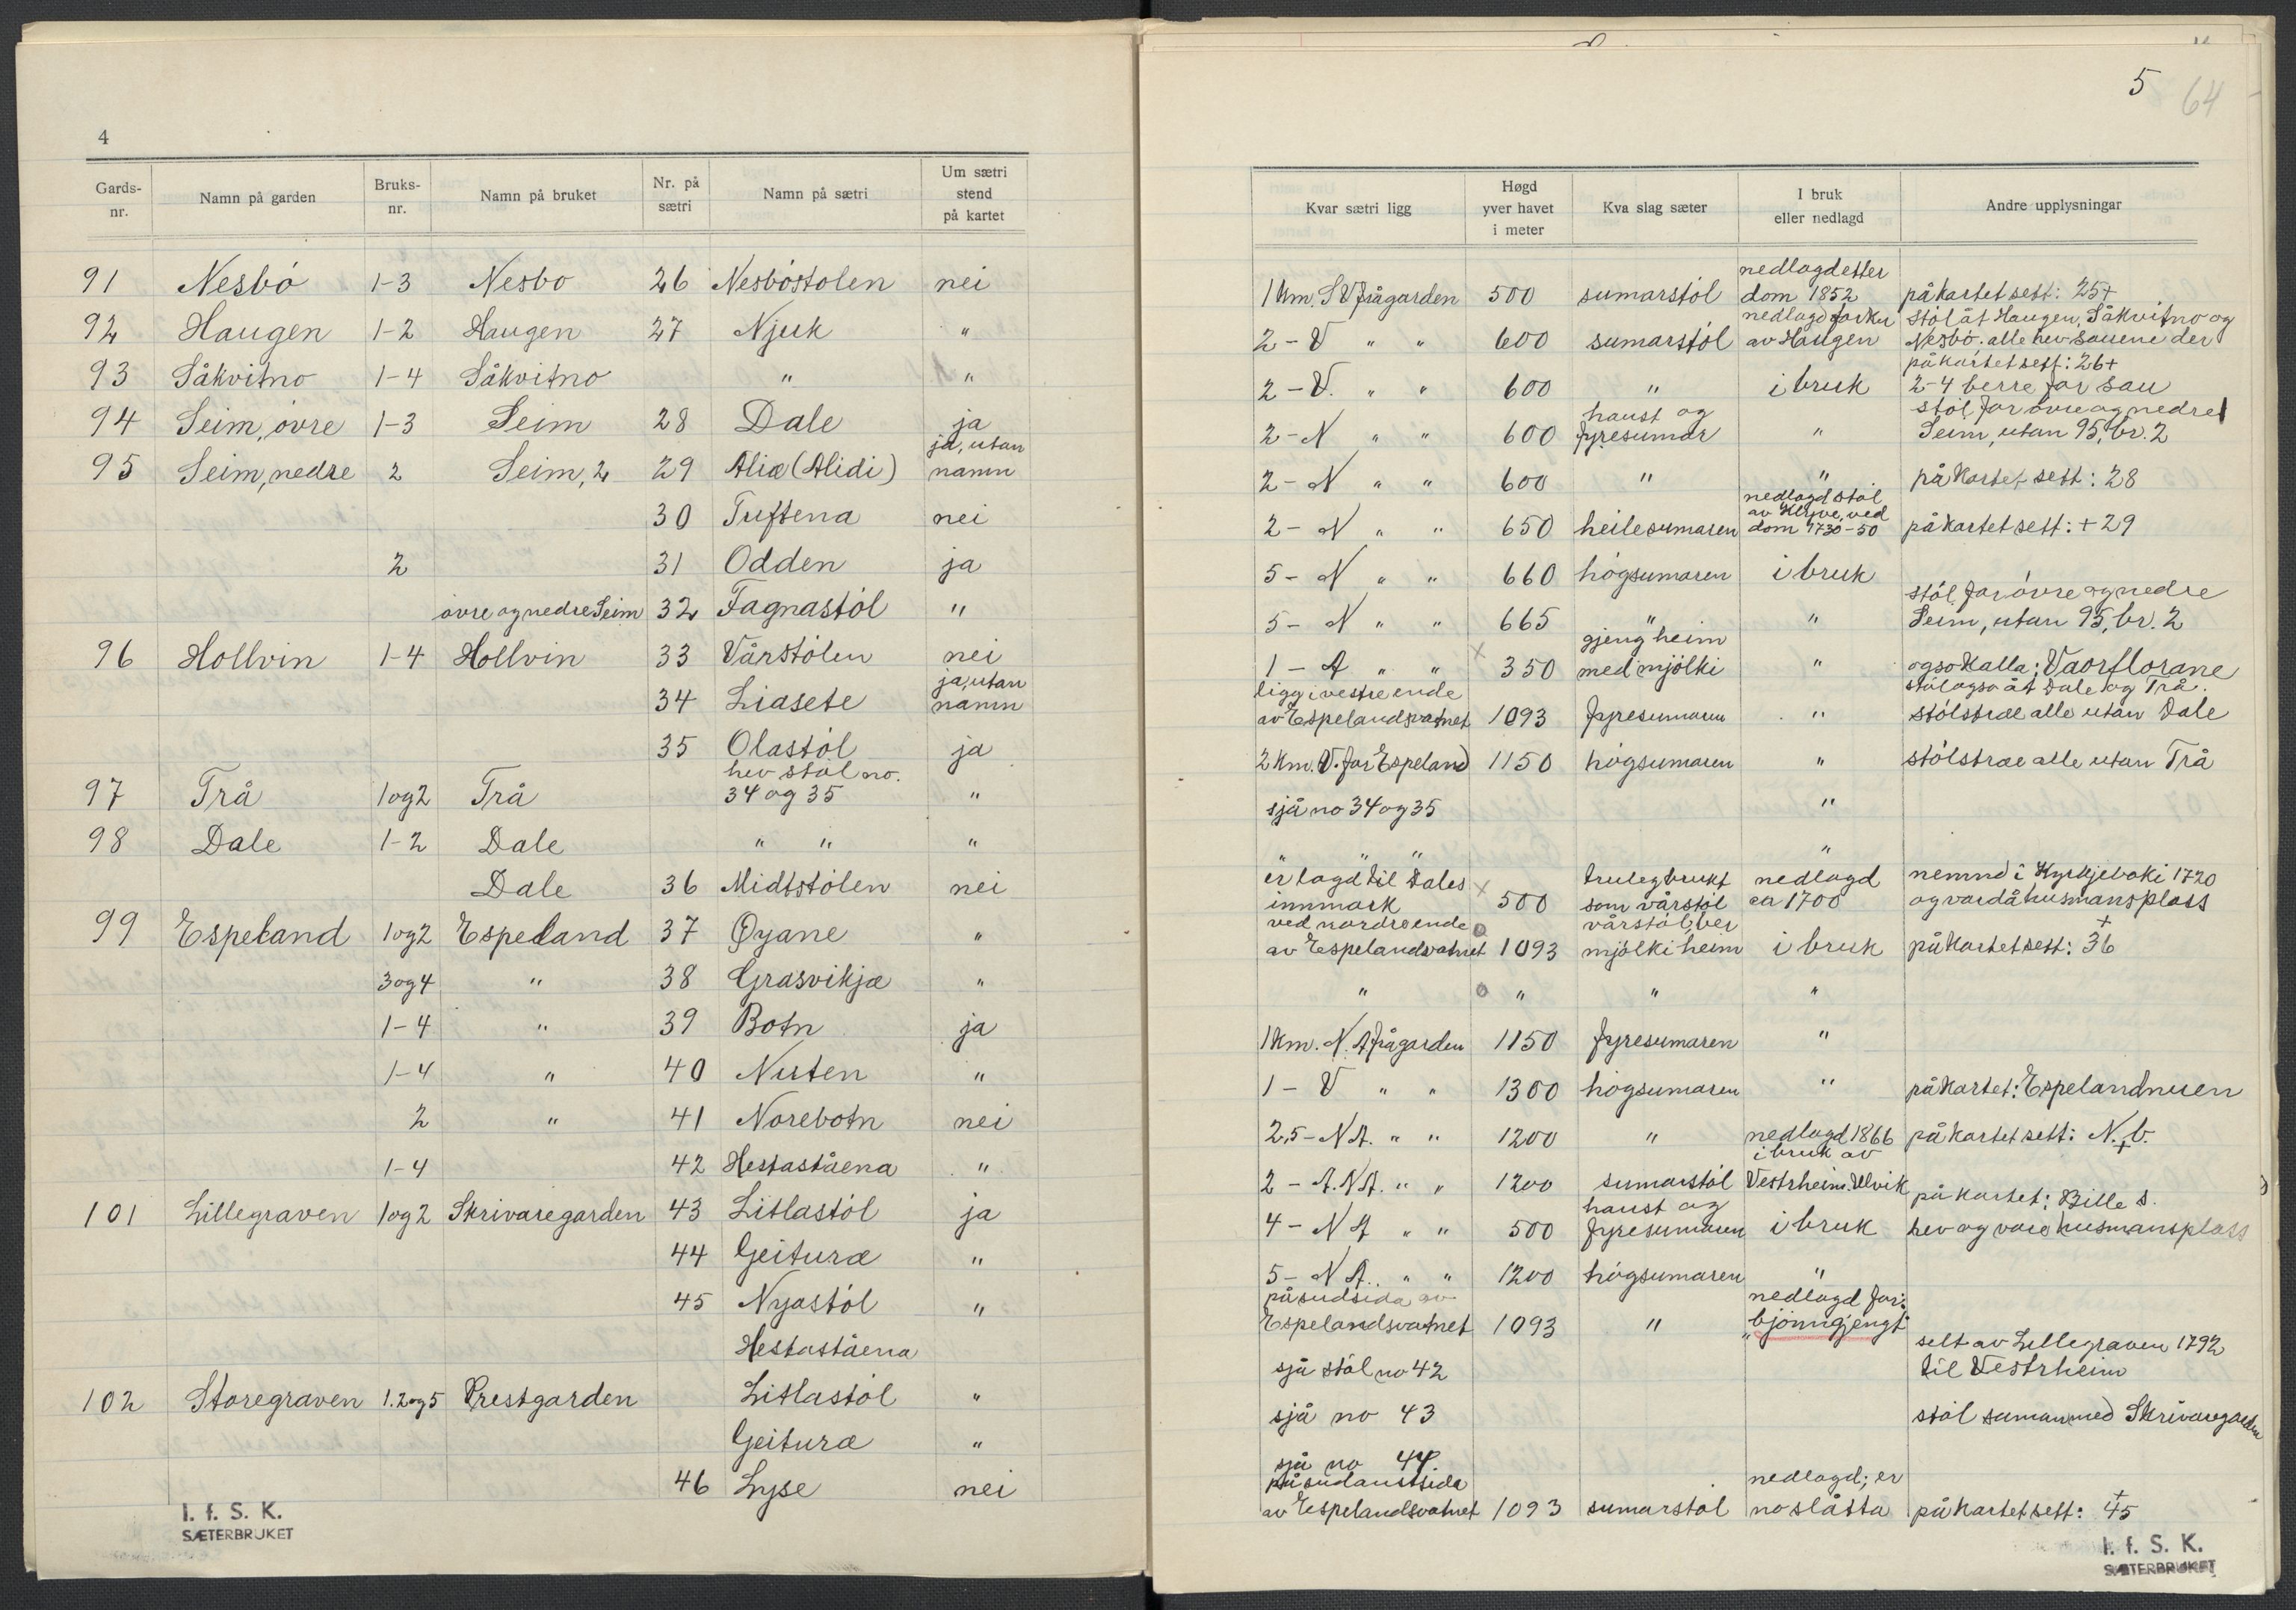 4
Gards-nr. Namn på garden Bruks-nr. Namn på bruket Nr. på sætri Namn på sætri Um sætri stend på kartet
91 Nesbö 1-3 Nesbö 26 Nesböstölen nei
92 Haugen 1-2 Haugen 27 Njuk "
93 Såkvitno 1-4 Såkvitno " "
94 Seim, övre 1-3 Seim 28 Dale ja
95 Seim, nedre 2 Seim, 2 29 Aliæ (Alidi) ja, utan namn
30 Tuftena nei
2 31 Odden ja
övre og nedre Seim 32 Fagnastöl "
96 Hollvin 1-4 Hollvin 33 Vårstölen nei
34 Liasete ja, utan namn
35 Olastöl ja
97 Trå 1og2 Trå hev stöl no. 34 og 35 "
98 Dale 1-2 Dale " " "
Dale 36 Midtstölen nei
99 Espeland 1og2 Espeland 37 Öyane "
3og4 " 38 Grasvikjæ "
1-4 " 39 Botn ja
1-4 " 40 Nuten "
2 " 41 Norebotn nei
1-4 42 Hestaståena "
101 Lillegraven 1og2 Skrivaregarden 43 Litlastöl ja
44 Geituræ "
45 Nyastöl "
Hestaståena
102 Storegraven 1.2og5 Prestgarden Litlastöl "
Geituræ "
46 Lyse nei
I. f. S. K.
SÆTERBRUKET
5 64
Kvar sætri ligg Høgd yver havet i meter Kva slag sæter I bruk eller nedlagd Andre upplysningar
1 km. SV frå garden 500 sumarstöl nedlagd etter dom 1852 på kartet sett: 25+
2 - V " " 600 sumarstöl nedlagd for ku av Haugen stöl åt Haugen, Såkvitno og Nesbö. alle hev sauene der på kartet sett: 26+
2 - V. " " 600 " i bruk 2-4 berre for sau
2 - N " " 600 haust og fyresumar " stöl for övre og nedre Seim, utan 95, br. 2
2 - N " " 600 " " på kartet sett: 28
2 - N " " 650 heile sumaren nedlagd stöl av Kløve, ved dom 1730-50 på kartet sett: + 29
5 - N " " 660 högsumaren i bruk
5 - N " " 665 " " stöl for övre og nedre Seim, utan 95, br. 2
1 - A " " x 350 gjeng heim med mjölki " ogso kalla: Vaorflorane
ligg i vestre ende av Espelandsvatnet 1093 fyresumaren " stöl ogso åt Dale og Trå. stölstræ alle utan Dale
2 km. V. for Espeland 1150 högsumaren " stölstræ alle utan Trå
sjå no 34 og 35 "
" " " "
er lagd til Dales innmark x 500 truleg brukt som vårstöl nedlagd ca 1700 nemnd i Kyrkjeboki 1720 og var då husmansplass
ved nordre ende av Espelandsvatnet o 1093 vårstöl, ber mjölki heim i bruk på kartet sett: 36 +
" o " " "
1 km. N. A frå garden 1150 fyresumaren "
1 - V " " 1300 högsumaren " på kartet: Espelandnuen
2,5 - NA. " " 1200 " nedlagd 1866 på kartet sett: N. b. +
2 - A.NA. " " 1200 sumarstöl i bruk av Vestrheim, Ulvik
4 - NA " " 500 haust og fyresumaren i bruk på kartet: Bille s. hev og vore husmansplass
5 - NA. " " 1200 högsumaren "
på sudsida av Espelandsvatnet 1093 " nedlagd for: "björngjengt"
sjå stöl no 42 selt av Lillegraven 1792 til Vestrheim
sjå no 43 stöl saman med Skrivaregarden
sjå no 44.
på sudaustsida av Espelandsvatnet 1093 sumarstöl nedlagd; er no slåtta på kartet sett: + 45
I. f. S. K.
SÆTERBRUKET